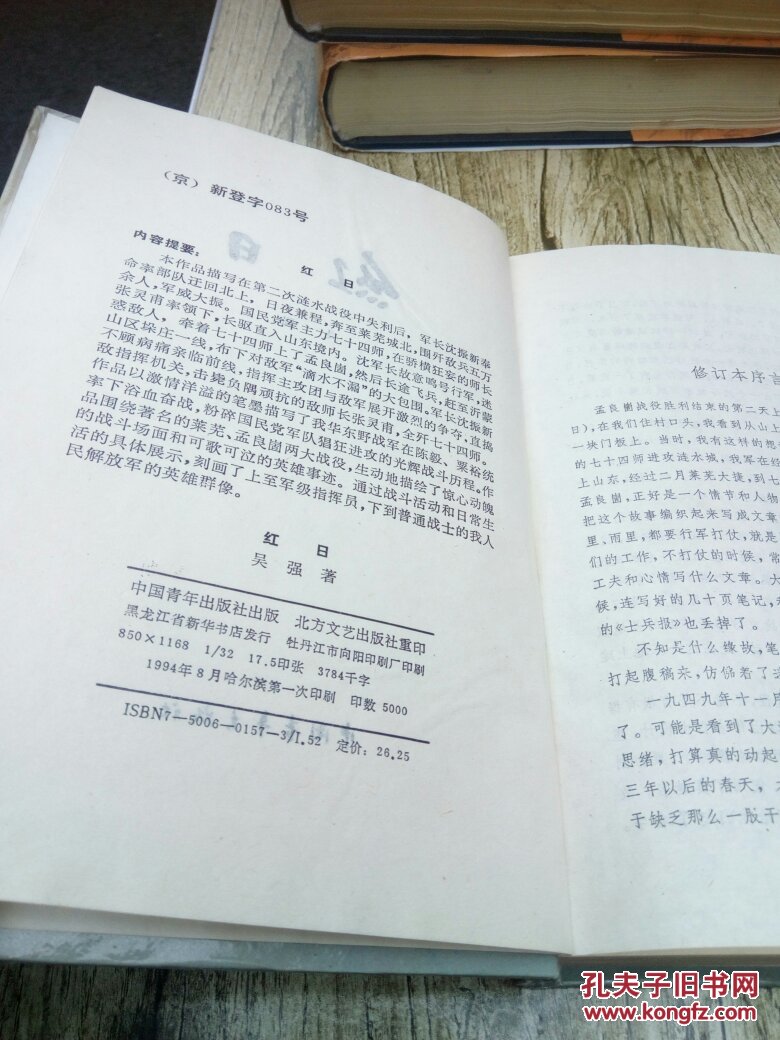 （京）新登字083号
红 日
内容提要：
本作品描写在第二次涟水战役中失利后，军长沈振新奉
命率部队迂回北上，日夜兼程，奔至莱芜城北，围歼敌兵五万
余人，军威大振。国民党军主力七十四师，在骄横狂妄的师长
张灵甫率领下，长驱直入山东境内。沈军长故意鸣号行军，迷
惑敌人，牵着七十四师上了孟良崮，然后长途飞兵，赶至沂蒙
山区垛庄一线，布下对敌军“滴水不漏”的大包围。军长沈振新
不顾病痛亲临前线，指挥主攻团与敌军展开激烈的争夺，直捣
敌指挥机关，击毙负隅顽抗的敌师长张灵甫，全歼七十四师。
作品以激情洋溢的笔墨描写了我华东野战军在陈毅、粟裕统
率下浴血奋战，粉碎国民党军队猖狂进攻的光辉战斗历程。作
品围绕著名的莱芜、孟良崮两大战役，生动地描绘了惊心动魄
的战斗场面和可歌可泣的英雄事迹。通过战斗活动和日常生
活的具体展示，刻画了上至军级指挥员，下到普通战士的我人
民解放军的英雄群像。
红 日
吴 强 著
中国青年出版社出版 北方文艺出版社重印
黑龙江省新华书店发行 牡丹江市向阳印刷厂印刷
850×1168 1/32 17.5印张 3784千字
1994年8月哈尔滨第一次印刷 印数 5000
ISBN7—5006—0157—3/I.52 定价：26.25
修订本序言
孟良崮战役胜利结束的第二天上
日），在我们住村口头，我看到从山上
一块门板上。当时，我有这样的想
的七十四师进攻涟水城，我军在
上山东，经过二月莱芜大捷，到七
孟良崮，正好是一个情节和人物
把这个故事编织起来写成文章
里、雨里，都要行军打仗，就是
们的工作，不打仗的时候，常
工夫和心情写什么文章。大
候，连写好的几十页笔记，
的《士兵报》也丢掉了。
不知是什么缘故，笔
打起腹稿来，仿佛着了
一九四九年十一月
了。可能是看到了大
思绪，打算真的动起
三年以后的春天，
于缺乏那么一股干
孔夫子旧书网
www.kongfz.com